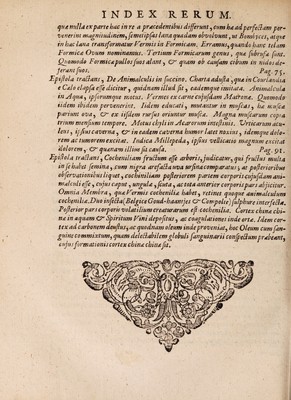 INDEX RERUM.
qua nulla ex parte huc in re a præcedentibus differunt, cum hæ ad perfectam per-
venerint magnitudinem, semetipsas lana quadam obvolvunt, ut Bombyces, atque
in hac lana transformatur Vermis in Formicam. Erramus, quando hanc telam
Formicæ Ovum nominamus. Tertium Formicarum genus, quæ subrufæ sunt.
Quomodo Formicæ pullos suos alunt, & quam ob causam cibum in nidos de-
ferant suos. Pag. 75.
Epistola tractans, De Animalculis in succino. Charta adusta, quæ in Courlandia
e Cælo elapsa esse dicitur, quidnam illud sit, eademque imitata. Animalcula
in Aqua, ipsorumque motus. Vermes ex carne cujusdam Matronæ. Quomodo
iidem ibidem pervenerint. Iidem educati, mutantur in muscas, hæ muscæ
pariunt ova, & ex iisdem rursus oriuntur muscæ. Magna muscarum copia
trium mensium tempore. Motus chyli in Acarorum intestinis. Urticarum acu-
leus, ipsius caverna, & in eadem caverna humor latet noxius, idemque dolo-
rem ac tumorem excitat. Indica Millepeda, ipsius vellicatio magnum excitat
dolorem, & quænam illius sit causa. Pag. 91.
Epistola tractans, Cochenilium fructum esse arboris, judicatur, qui fructus multa
in se habet semina, cum nigra arefacta uva ursina comparatur; ac posterioribus
observationibus liquet, cochinilium posteriorem partem corporis cujusdam ani-
malculi esse, cujus caput, ungulæ, scuta, ac ita anterior corporis pars abjicitur.
Omnia Membra, quæ Vermis Cochenilia habet, retinet quoque animalculum
cochenilia. Duo insecta (Belgice Goud-haantjes & Compoſtie) sulphure interfecta.
Posterior pars corporis volatilium creaturarum est cochenilia. Cortex china chi-
næ in aquam & Spiritum Vini depositus, ac coagulationes inde ortæ. Idem cor-
tex ad carbonem deustus, ac quodnam oleum inde proveniat, hoc Oleum cum San-
guine commixtum, quam delectabilem globuli sanguinarii conspectum præbeant,
cujus formationis cortex china chinæ sit.